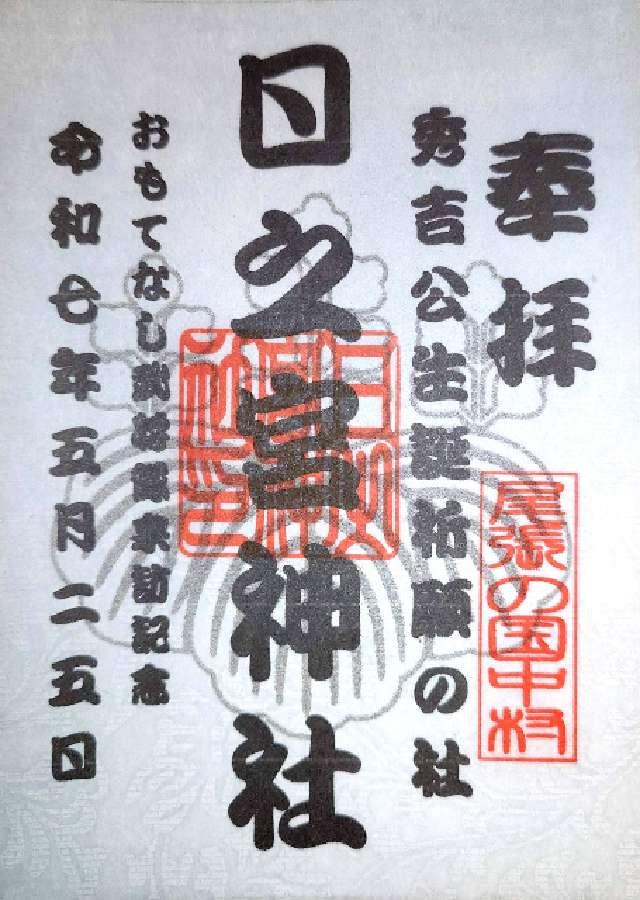 奉拝
尾張の国中村
秀吉公生誕祈願の社
日之宮神社
おもてなし武将隊来訪記念
令和七年五月二五日